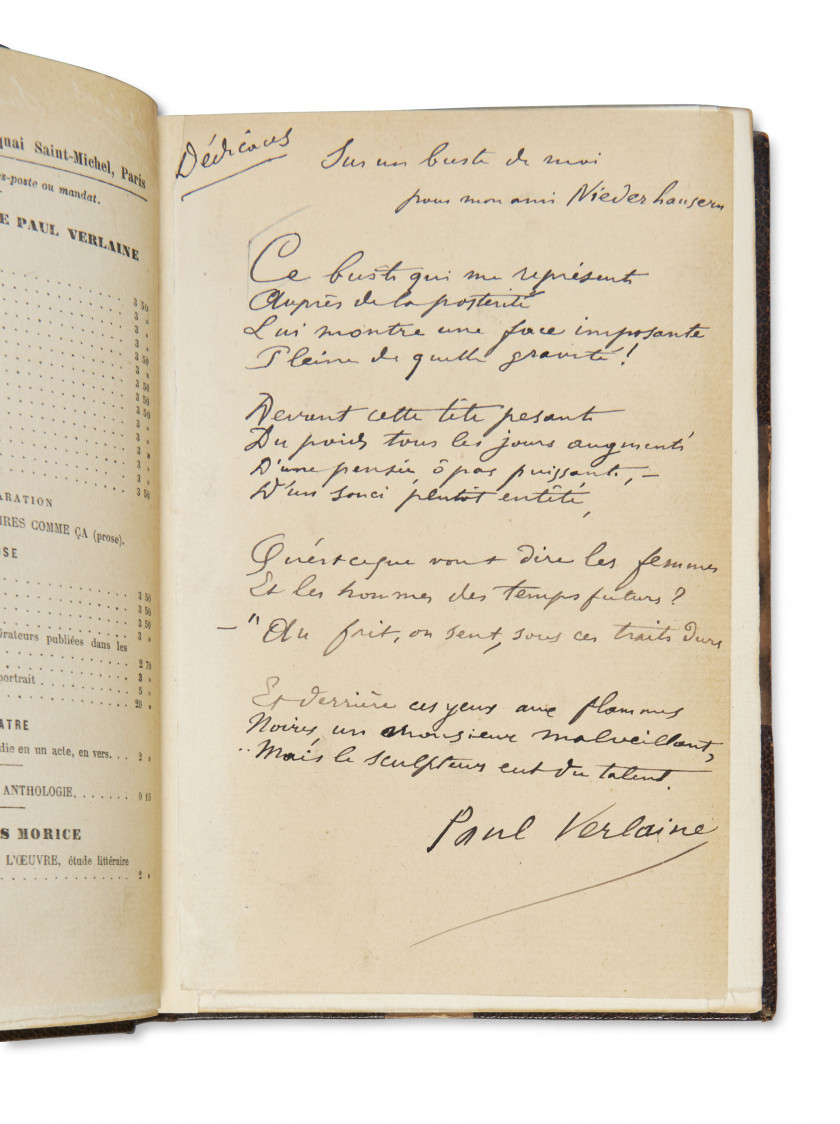 quai Saint-Michel, Paris
s-poste ou mandat.
E PAUL VERLAINE
3 50
3 »
3 »
3 »
3 50
3 »
3 50
3 50
3 50
3 »
3 »
3 »
3 »
3 50
ARATION
IRES COMME ÇA (prose).
OSE
3 50
3 50
3 50
3 »
érateurs publiées dans les
2 70
portrait 3 »
5 »
20 »
ATRE
die en un acte, en vers. . . 2 »
ANTHOLOGIE. . . . . . . 0 15
S MORICE
L'ŒUVRE, étude littéraire
2 »
Dédicaces
Sur un buste de moi
pour mon ami Niederhausern
Ce buste qui me représente
Auprès de la postérité
Lui montre une face imposante
Pleine de quelle gravité !
Devant cette tête pesante
Du poids tous les jours augmenté
D'une pensée, ô pas puissante, —
D'un souci plutôt entêté,
Qu'est-ce que vont dire les femmes
Et les hommes des temps futurs ?
— "Au frit, on sent, sous ces traits durs
Et derrière ces yeux aux flammes
Noires, un monsieur malveillant,
.. Mais le sculpteur eut du talent.
Paul Verlaine